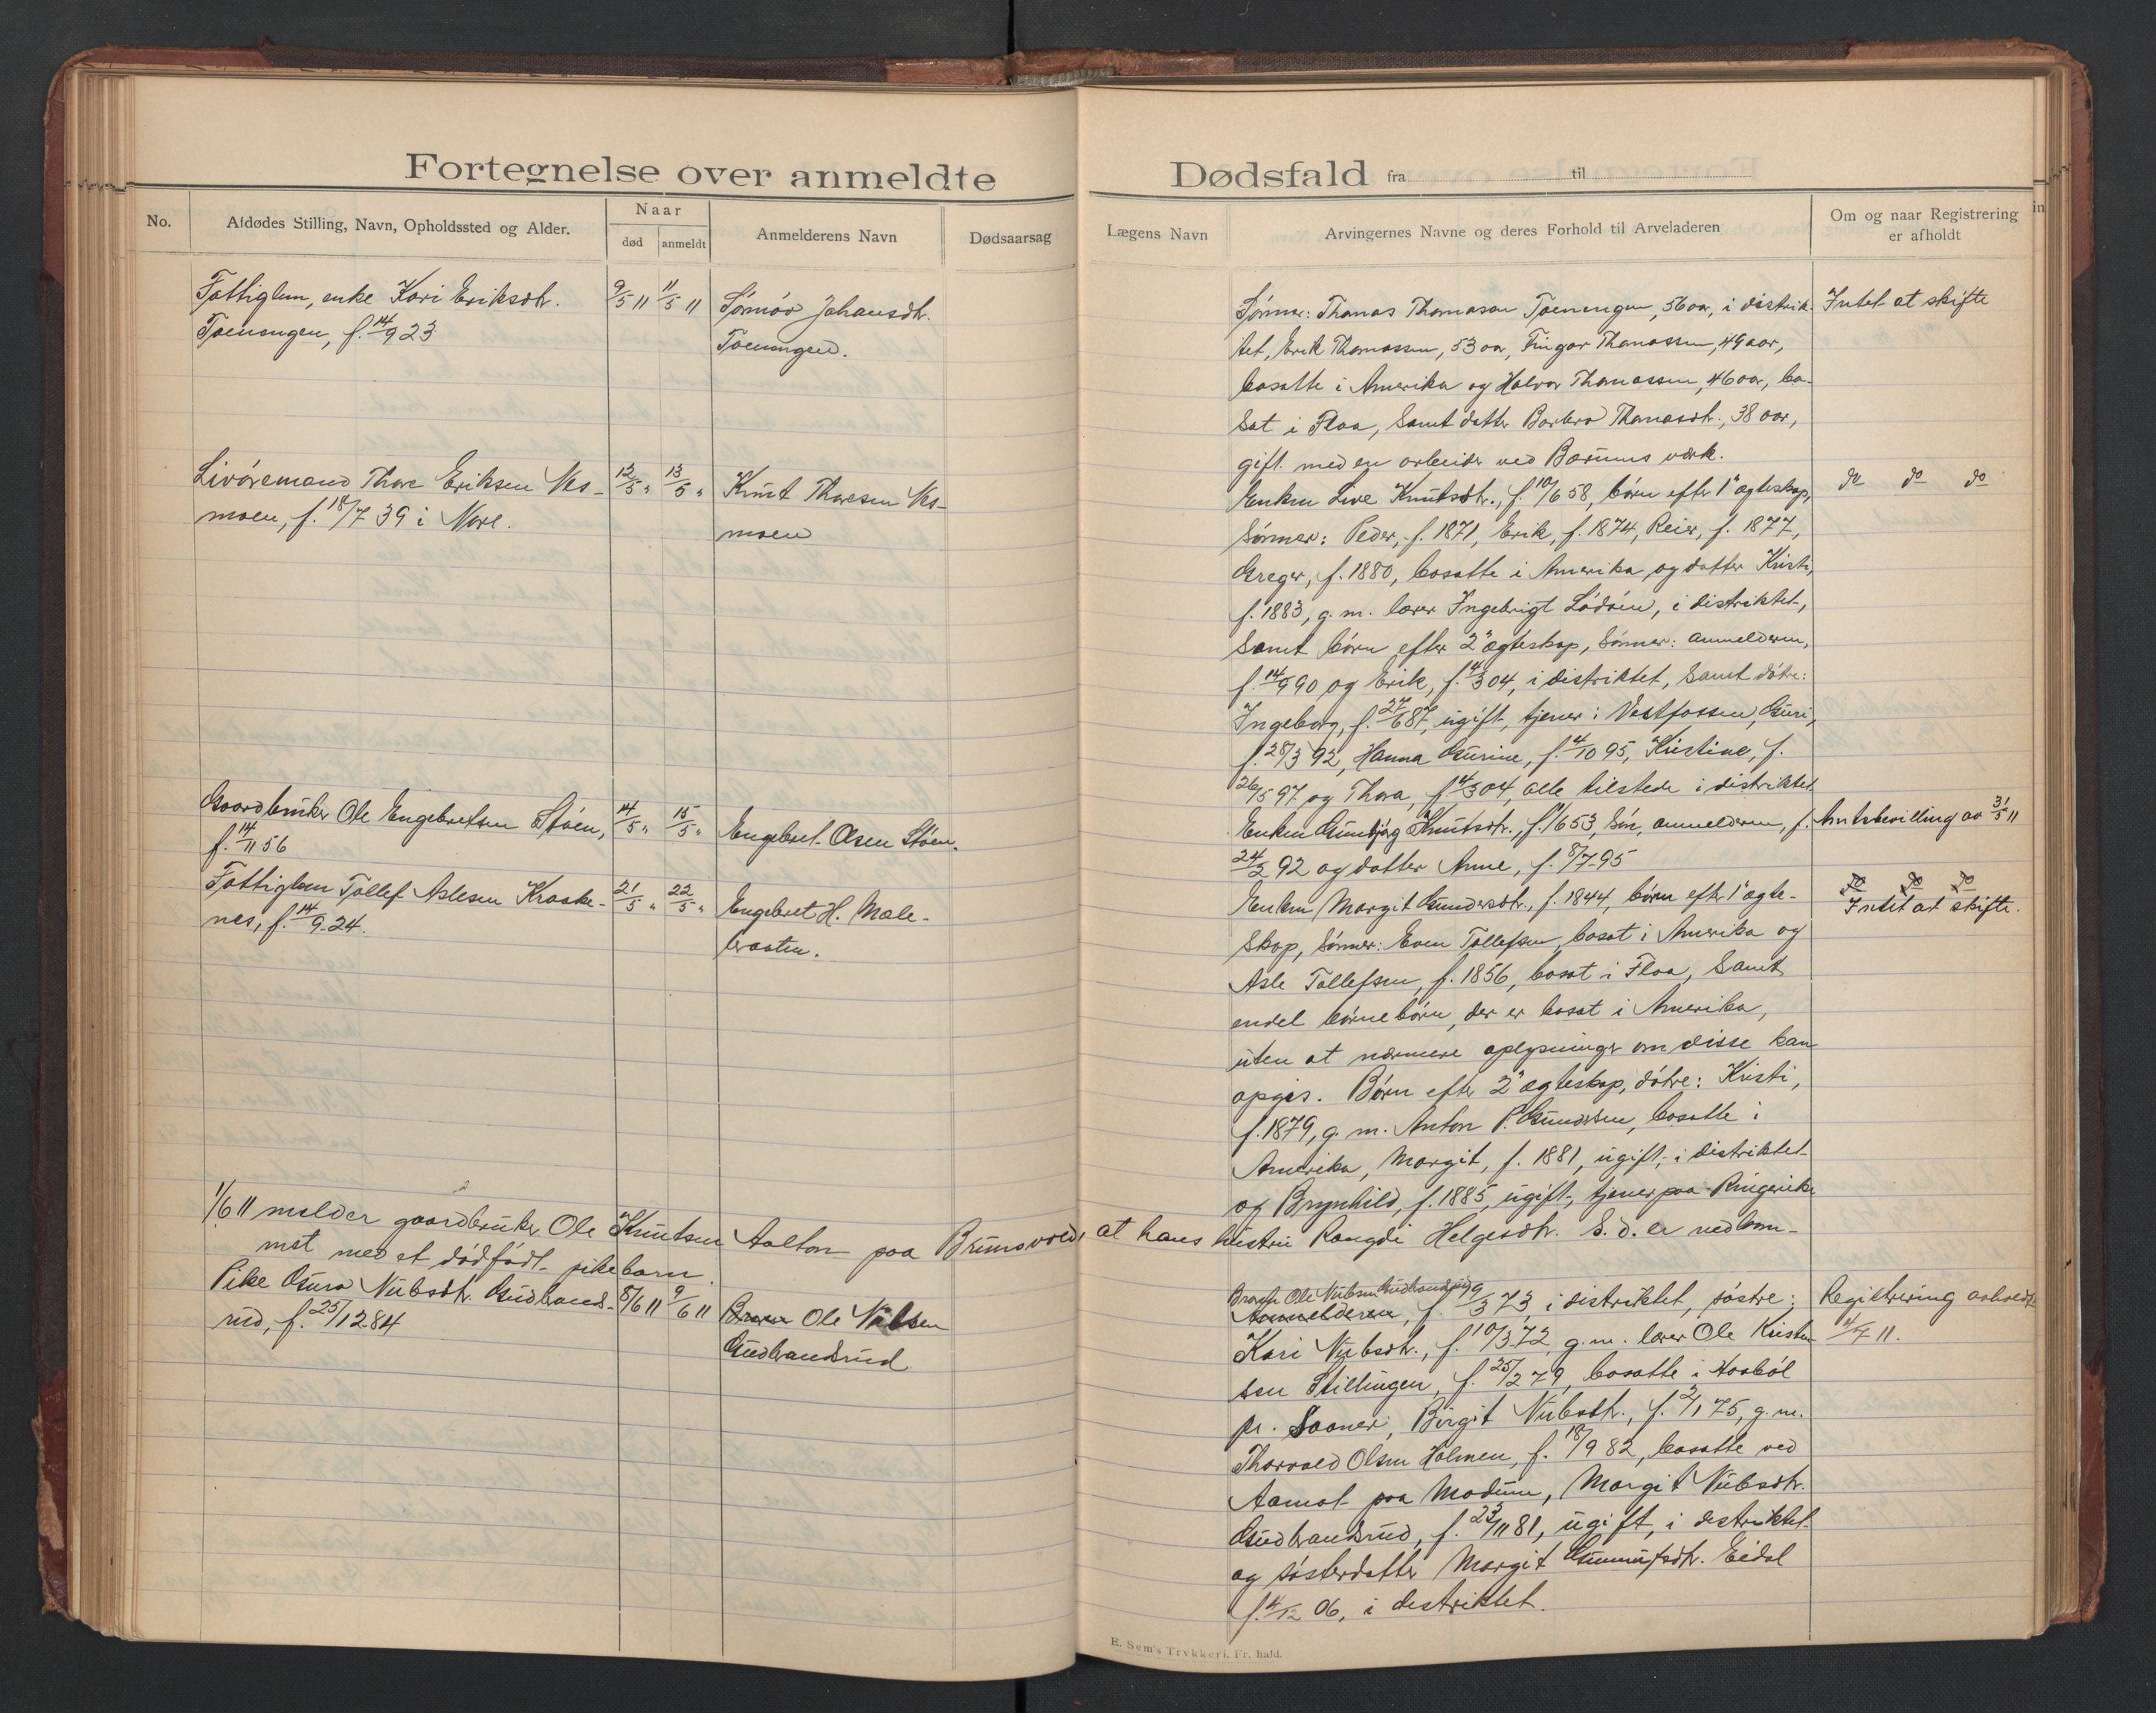 Fortegnelse over anmeldte
No.
Afdødes Stilling, Navn, Opholdssted og Alder.
Naar
død
anmeldt
Anmelderens Navn
Dødsaarsag
Fattiglem, enke Kari Eriksdtr.
f. 14/9 23
9/5 11
11/5 11
Johansdtr.
Livøremand Thore Eriksen Ves-
moen, f. 18/7 39 i Nore.
12/5 "
13/5 "
Knut Thoresen Ves-
moen
Gaardbruker Ole Engebretsen Støen,
f. 14/11 56
14/5 "
15/5 "
Engebret Olsen Støen.
Fattiglem Tollef Aslesen Kraake-
nes, f. 14/9 24.
21/5 "
22/5 "
Engebret H. Male-
braaten.
1/6 11 melder gaardbruker Ole Knutsen Aalton paa Brunsvold, at hans hustru Rangdi Helgesdtr. S. d. er nedkom-
met med et dødfødt pikebarn.
Pike Guro Nubsdtr. Gudbrands-
rud, f. 25/12 84
8/6 11
9/6 11
Broren Ole Nubsen
Gudbrandsrud
Dødsfald fra til
Lægens Navn
Arvingernes Navne og deres Forhold til Arveladeren
Om og naar Registrering
er afholdt
in
Sønner: Thomas Thomasen Toenengen, 56 aar, i distrik-
tet, Erik Thomassen, 53 aar, Fingar Thomassen, 49 aar,
bosatte i Amerika og Halvor Thomassen, 46 aar, bo-
sat i Flaa, samt datter Barbro Thomasdtr., 38 aar,
gift med en arbeider ved Bærums værk.
Intet at skifte
Enken Live Knutsdtr., f. 10/6 58, børn efter 1' ægteskap,
sønner: Peder, f. 1871, Erik, f. 1874, Reier, f. 1877,
Greger, f. 1880, bosatte i Amerika og datter Kristi,
f. 1883, g. m. lærer Ingebrigt Lødøen, i distriktet,
samt børn efter 2' ægteskap, sønner: anmelderen,
f. 14/9 90 og Erik, f. 4/3 04, i distriktet, samt døtre:
Ingeborg, f. 27/6 87, ugift, tjener i Vestfossen, Guri,
f. 28/3 92, Hanna Gurine, f. 4/10 95, Kristine, f.
26/5 97 og Thora, f. 4/3 04, alle tilstede i distriktet.
do do do
Enken Gunbjørg Knutsdtr., f. 1/6 53, søn, anmelderen, f.
24/2 92 og datter Anne, f. 8/7 95
Amtsbevilling av 31/5 11
Enken Margit Gundersdtr., f. 1844, børn efter 1' ægte-
skap, sønner: Even Tollefsen, bosat i Amerika og
Asle Tollefsen, f. 1856, bosat i Flaa, samt
endel børnebørn, der er bosat i Amerika,
uten at nærmere oplysninger om disse kan
opgis. Børn efter 2' ægteskap, døtre: Kristi,
f. 1879, g. m. Anton P. Gundersen, bosatte i
Amerika, Margit, f. 1881, ugift, i distriktet
og Brynhild, f. 1885, ugift, tjener paa Ringerike
do do do
Intet at skifte.
Broren Ole Nubsen Gudbrandsrud
Anmelderen, f. 9/3 73, i distriktet, søstre:
Kari Nubsdtr., f. 10/3 72, g. m. lærer Ole Kristen-
sen Stillingen, f. 25/2 79, bosatte i Aasbøl
pr. Sooner, Birgit Nubsdtr., f. 2/1 75, g. m.
Thorvald Olsen Holmen, f. 18/9 82, bosatte ved
Aamot paa Modum, Margit Nubsdtr.
Gudbrandsrud, f. 23/11 81, ugift, i distriktet
og søsterdatter Margit Gunnufsdtr. Eidal
f. 4/12 06, i distriktet.
Registrering avholdt
4/7 11.
E. Sem's Trykkeri, Fr. hald.